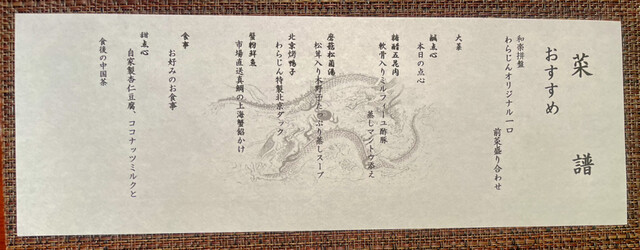 菜 譜
おすすめ
和楽拼盤
わらじんオリジナル一口
前菜盛り合わせ
大菜
鹹点心
本日の点心
糖醋五花肉
軟骨入りミルフィーユ酢豚
蒸しマントウ添え
磨菇松茸湯
松茸入り木野子たっぷり蒸しスープ
北京烤鴨子
わらじん特製北京ダック
蟹粉鮮魚
市場直送真鯛の上海蟹餡かけ
食事
お好みのお食事
甜点心
自家製杏仁豆腐、ココナッツミルクと
食後の中国茶